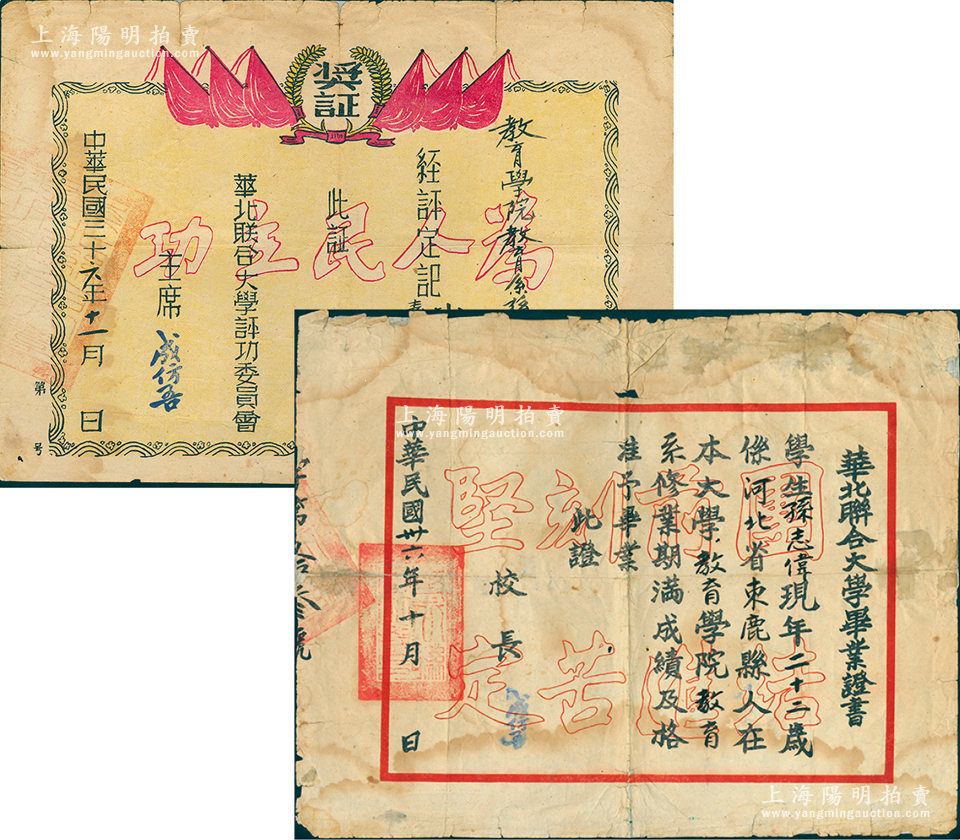 上海陽明拍賣
www.yangmingauction.com
獎証
教育學院教育係孫
經評定記
此証
華北联合大學評功委員會
主席
成仿吾
中華民國三十六年十一月 日
第 号
為人民立功
上海陽明拍賣
www.yangmingauction.com
華北聯合大學畢業證書
學生孫志偉現年二十二歲
係河北省束鹿縣人在
本大學教育學院教育
系修業期滿成績及格
准予畢業
此證
校長
成仿吾
中華民國卅六年十月 日
團結
前進
刻苦
堅定
字第拾叁號
上海陽明拍賣
www.yangmingauction.com